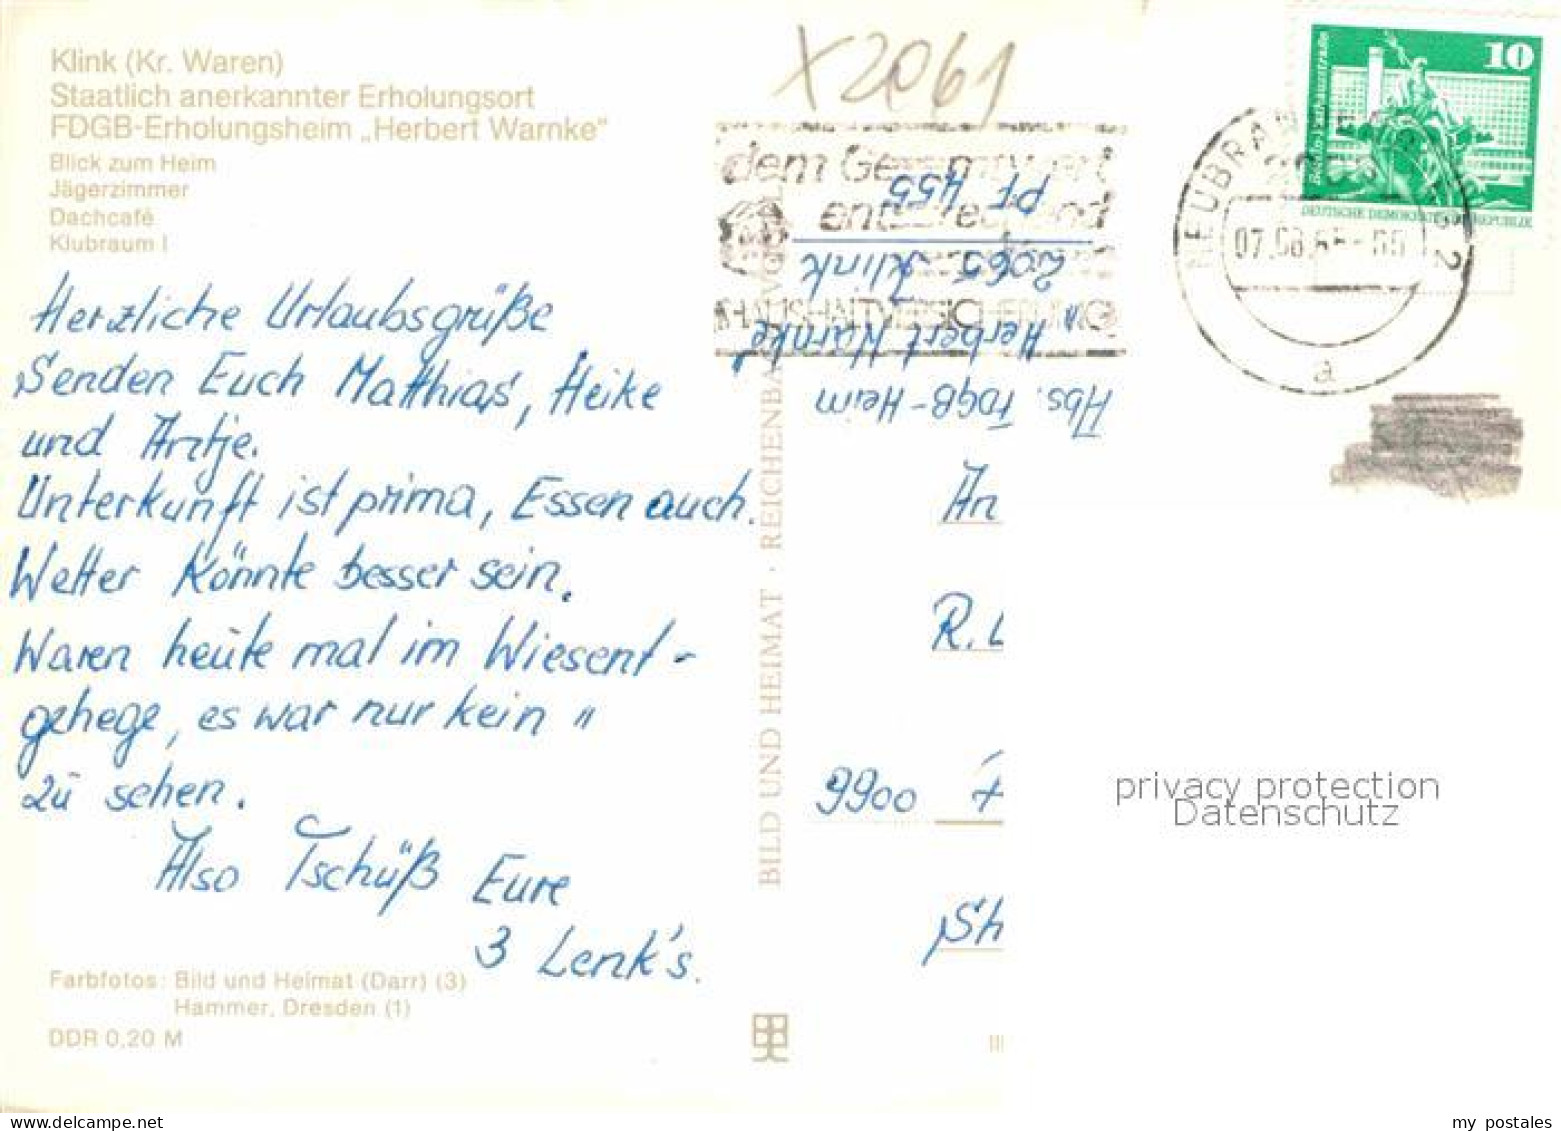 Klink (Kr. Waren)
Staatlich anerkannter Erholungsort
FDGB-Erholungsheim „Herbert Warnke"
Blick zum Heim
Jägerzimmer
Dachcafé
Klubraum I
Herzliche Urlaubsgrüße
Senden Euch Matthias, Heike
und Antje.
Unterkunft ist prima, Essen auch.
Wetter könnte besser sein.
Waren heute mal im Wiesent-
gehege, es war nur kein "
zu sehen.
Also Tschüß Eure
3 Lenk's.
Farbfotos: Bild und Heimat (Darr) (3)
Hammer, Dresden (1)
DDR 0,20 M
BILD UND HEIMAT · REICHENBA VOGTL
X2061
dem Gesamtwert
entsprechend
HAUSHALTVERSICHERUNG
Abs. FDGB-Heim
"Herbert Warnke"
2065 Klink
PF 455
10
DEUTSCHE DEMOKRATISCHE REPUBLIK
NEUBRANDENBURG 2
a
An
R. L
9900
Sh
privacy protection
Datenschutz
my postales